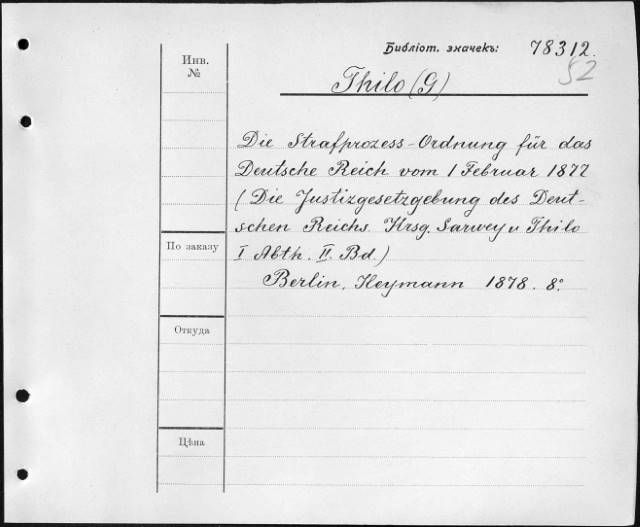 Библіот. значекъ: 78312.
52
Инв.
№
Thilo (G)
Die Strafprozess-Ordnung für das
Deutsche Reich vom 1 Februar 1877
(Die Justizgesetzgebung des Deut-
schen Reichs. Hrsg. Sarwey u Thilo
I Abth. II. Bd.)
Berlin. Heymann 1878. 8°.
По заказу
Откуда
Цѣна